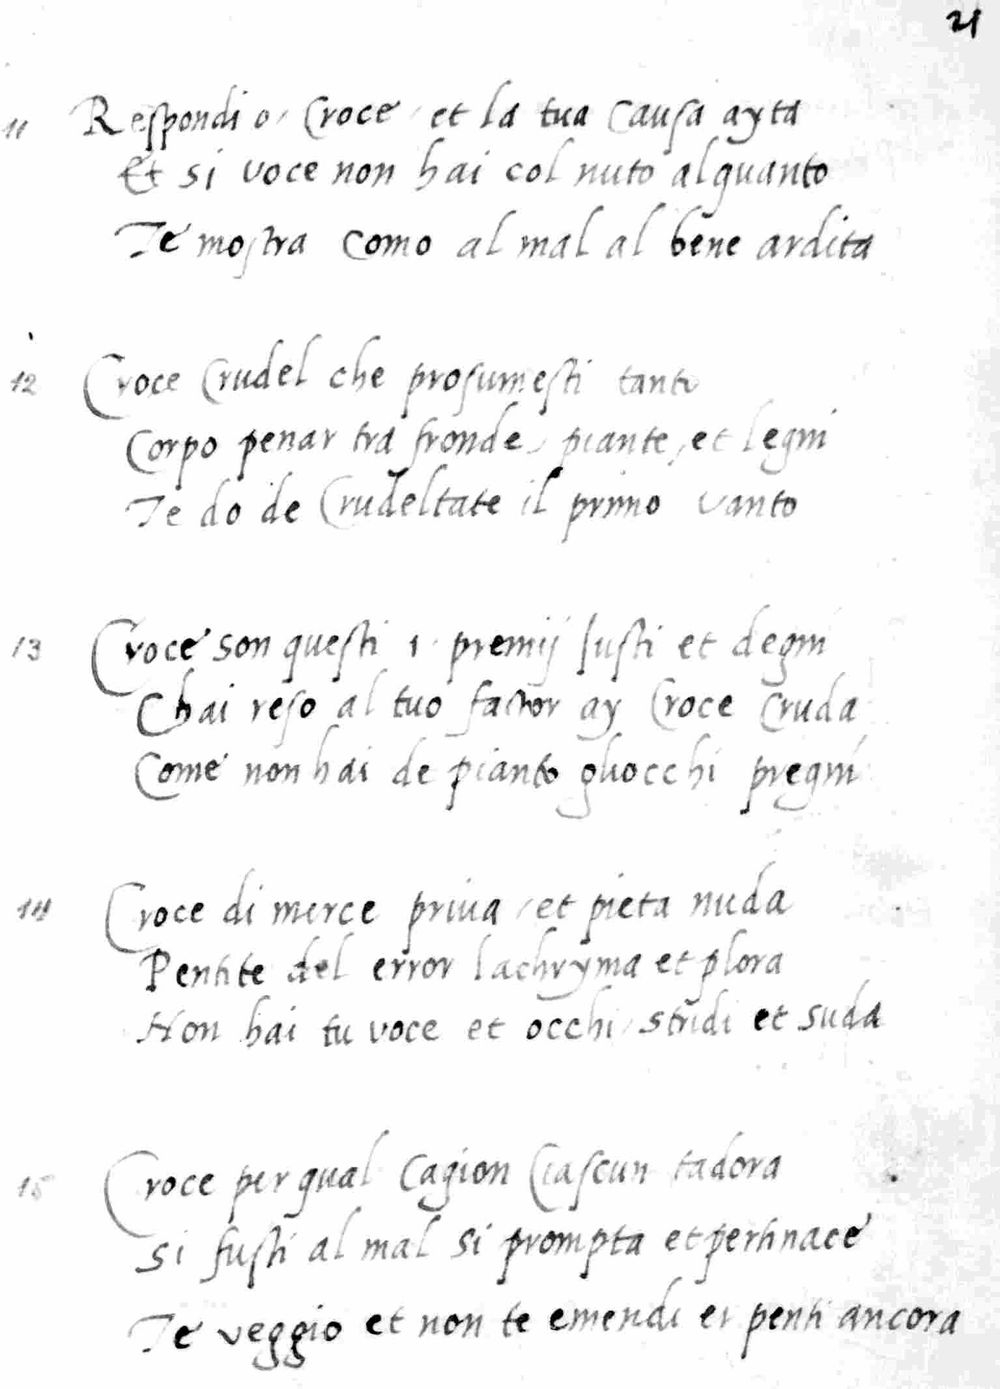 21
11 Respondi o / Croce / et la tua Causa ayta
Et si voce non hai col nuto alquanto
Te mostra Como al mal al bene ardita
12 Croce Crudel che prosumesti tanto
Corpo penar tra fronde / piante / et legni
Te do de Crudeltate il primo vanto
13 Croce son questi i premij Iusti et degni
Chai reso al tuo factor ay Croce Cruda
Come non hai de pianto gliocchi pregni
14 Croce di merce priva / et pieta nuda
Pentite del error lachryma et plora
Non hai tu voce et occhi / stridi et suda
15 Croce per qual Cagion Ciascun tadora
Si fusti al mal si prompta et pertinace
Te veggio et non te emendi et penti ancora